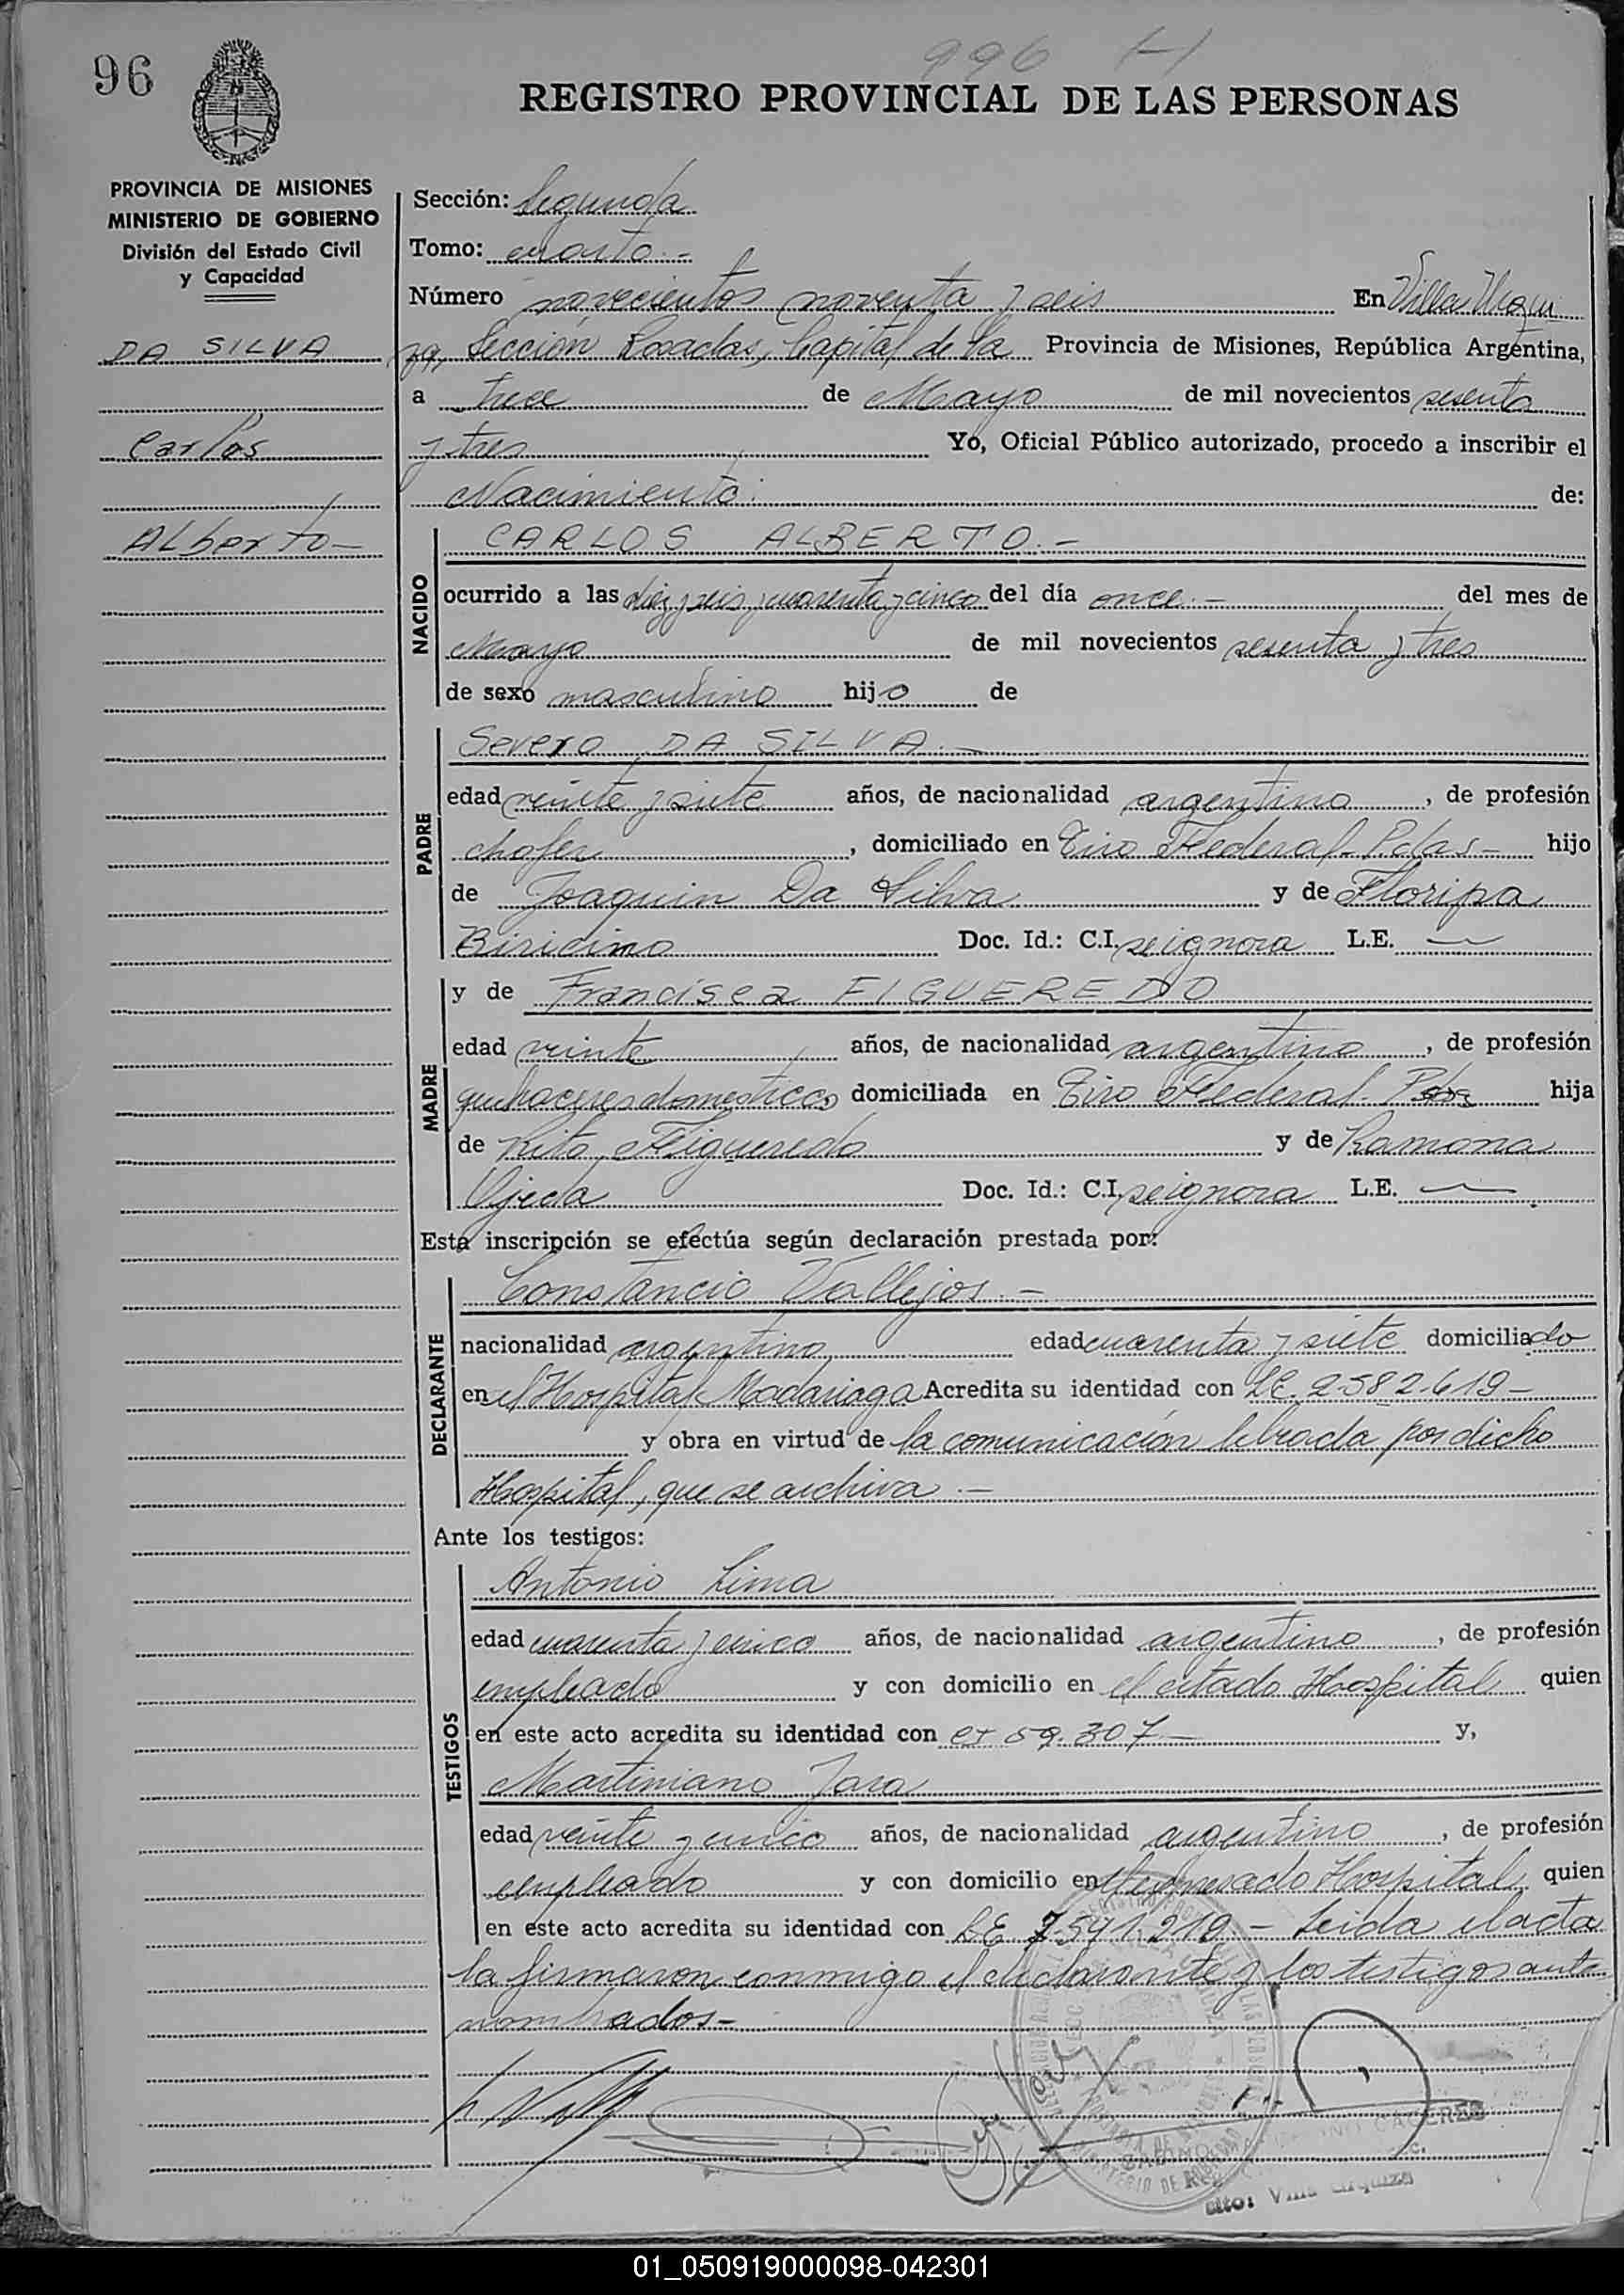 996 H
96
REGISTRO PROVINCIAL DE LAS PERSONAS
PROVINCIA DE MISIONES
MINISTERIO DE GOBIERNO
División del Estado Civil
y Capacidad
DA SILVA
Carlos
Alberto-
Sección: Segunda
Tomo: cuarto.-
Número novecientos noventa y seis En Villa Urqui
za, Sección Posadas, Capital de la Provincia de Misiones, República Argentina,
a trece de Mayo de mil novecientos sesenta
y tres Yo, Oficial Público autorizado, procedo a inscribir el
Nacimiento: de:
NACIDO
CARLOS ALBERTO.-
ocurrido a las diez y seis y cuarenta y cinco del día once.- del mes de
Mayo de mil novecientos sesenta y tres
de sexo masculino hijo de
PADRE
Severo DA SILVA.-
edad veinte y siete años, de nacionalidad argentino, de profesión
chofer, domiciliado en Tiro Federal-Pdas- hijo
de Joaquin Da Silva y de Floripa
Biricino Doc. Id.: C.I. se ignora L.E. —
MADRE
y de Francisca FIGUEREDO
edad veinte años, de nacionalidad argentina, de profesión
quehaceres domesticos domiciliada en Tiro Federal-Pdas hija
de Rito Figueredo y de Ramona
Ojeda Doc. Id.: C.I. se ignora L.E. —
Esta inscripción se efectúa según declaración prestada por:
DECLARANTE
Constancio Vallejos.-
nacionalidad argentino edad cuarenta y siete domiciliado
en el Hospital Madariaga Acredita su identidad con LE. 2.582.619-
y obra en virtud de la comunicación librada por dicho
Hospital, que se archiva.-
Ante los testigos:
TESTIGOS
Antonio Lima
edad cuarenta y cinco años, de nacionalidad argentino, de profesión
empleado y con domicilio en el citado Hospital quien
en este acto acredita su identidad con CI 59.307- y,
Martiniano Jara
edad veinte y cinco años, de nacionalidad argentino, de profesión
empleado y con domicilio en Hospital quien
en este acto acredita su identidad con LE 7.541.219- Leida el acta
la firmaron conmigo el declarante y los testigos ante
nombrados-
CACERES
Villa Urquiza
01_050919000098-042301